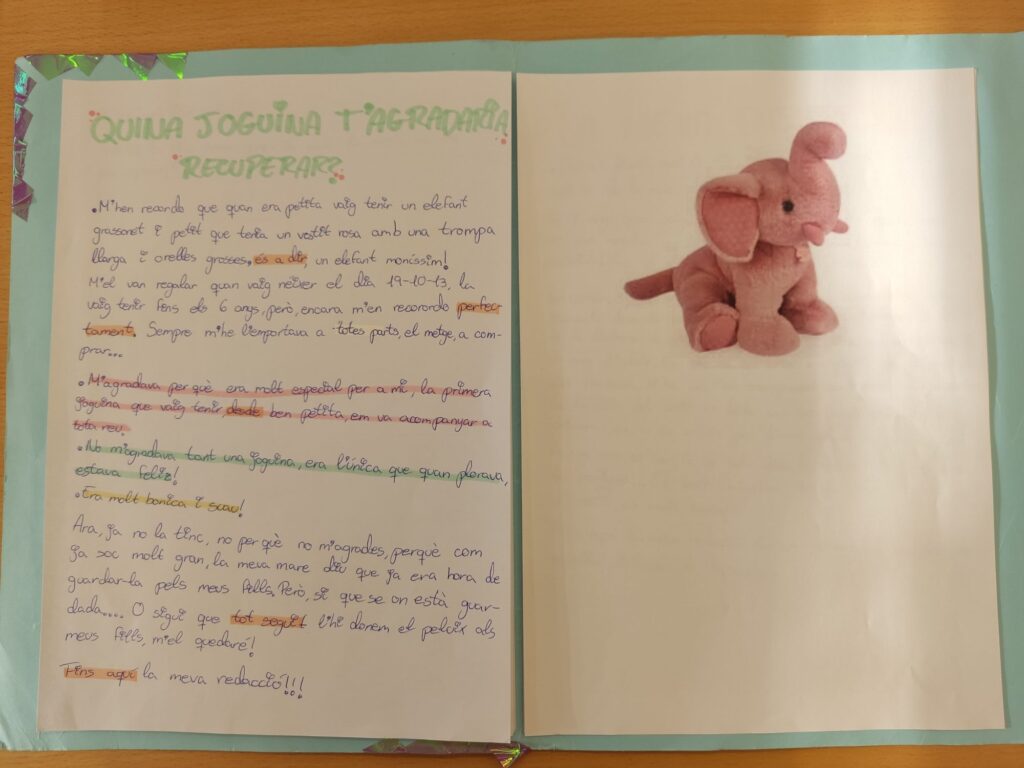 QUINA JOGUINA T'AGRADARIA
RECUPERAR?
.M'hen recordo que quan era petita vaig tenir un elefant
grassonet i petit que tenia un vestit rosa amb una trompa
llarga i orelles grosses, és a dir, un elefant moníssim!
M'el van regalar quan vaig néixer el dia 19-10-13, la
vaig tenir fins els 6 anys, però, encara m'en recorordo perfec
tament. Sempre m'he l'emportava a totes parts, el metge, a com-
prar...
.M'agradava per què era molt especial per a mi, la primera
joguina que vaig tenir, desde ben petita, em va acompanyar a
tota reu.
.No m'agradava tant una joguina, era l'única que quan plorava,
estava feliz!
.Era molt bonica i suau!
Ara, ja no la tinc, no per què no m'agrades, perquè com
ja soc molt gran, la meva mare diu que ja era hora de
guardar-la pels meus fills. Però, si que se on està guar-
dada.... O sigui que tot seguit l'hi donem el peluix als
meus fills, m'el quedaré!
Fins aquí la meva redacció!!!